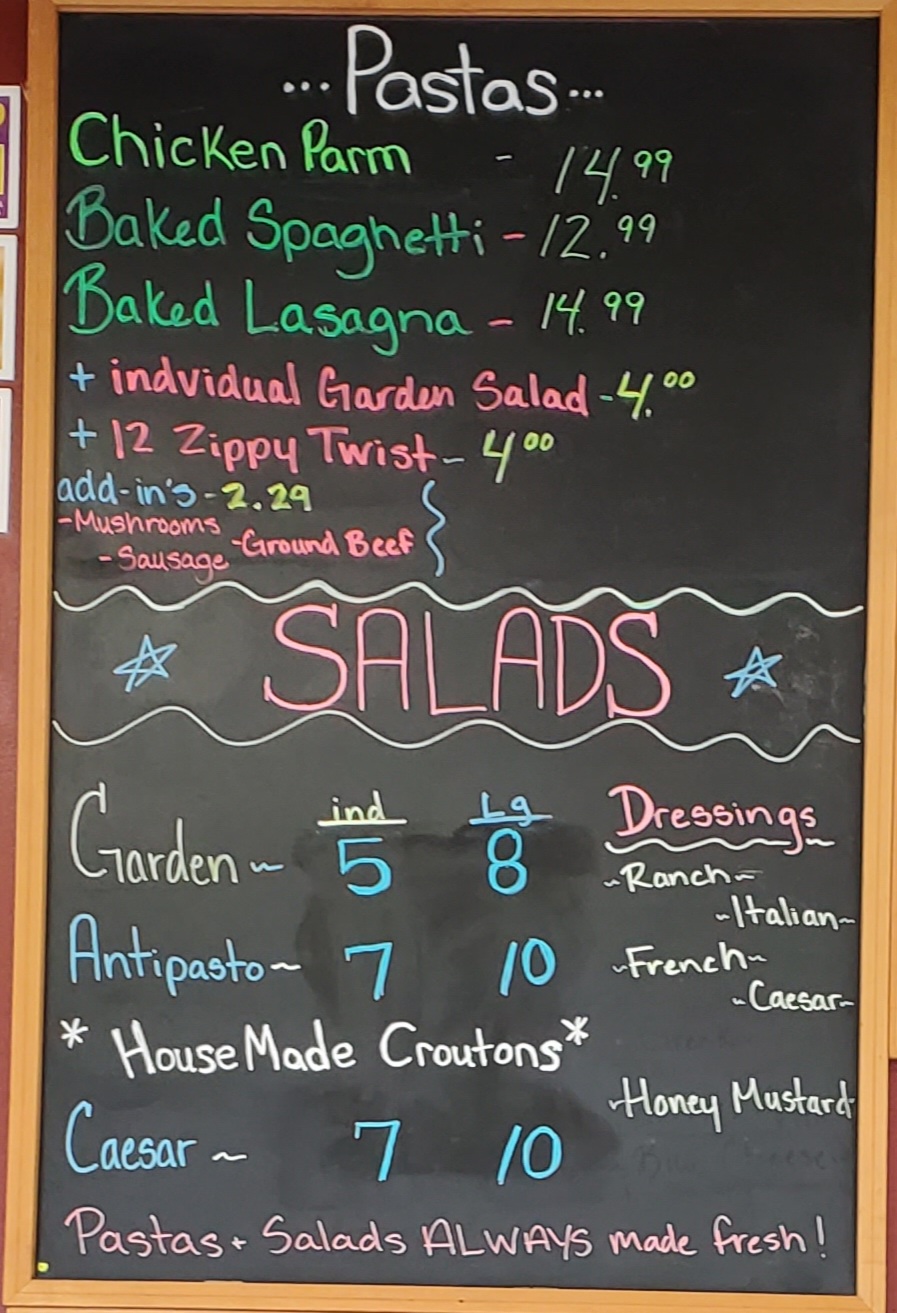 ...Pastas...
Chicken Parm - 14.99
Baked Spaghetti - 12.99
Baked Lasagna - 14.99
+ indvidual Garden Salad - 4.00
+ 12 Zippy Twist - 4.00
add-in's - 2.29
-Mushrooms
-Sausage -Ground Beef
SALADS
ind Lg
Garden ~ 5 8
Antipasto ~ 7 10
* House Made Croutons *
Caesar ~ 7 10
Dressings
~Ranch~
~Italian~
~French~
~Caesar~
~Honey Mustard
Pastas + Salads ALWAYS made fresh!